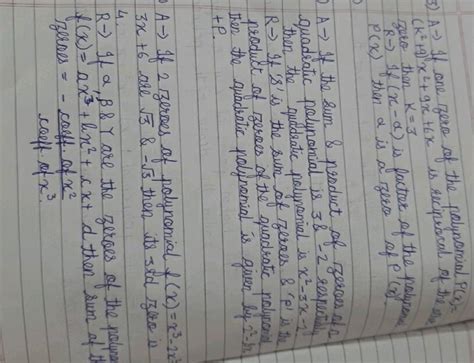 3) A→ If one zero of the polynomial P(x)=
(k²+9)x²+9x+6x is reciprocal of the
zero then k=3
R→ If (x-α) is factor of the polynomial
P(x) then α is a zero of P(x)
A→ If the sum & product of zeroes of
quadratic polynomial is 3 & -2 respective
then the quadratic polynomial is x²-3x-
R→ If 'S' is the sum of zeroes & 'P' is the
product of zeroes of the quadratic polynomial
then the quadratic polynomial is given by
+P.
A→ If 2 zeroes of polynomial f(x)=x³-2x²
3x+6 are √3 & -√3 then its 3rd zero is
4.
R→ If α, β & γ are the zeroes of the
f(x)=ax³+bx²+cx+d then sum of
zeroes = - coeff. of x²
coeff. of x³